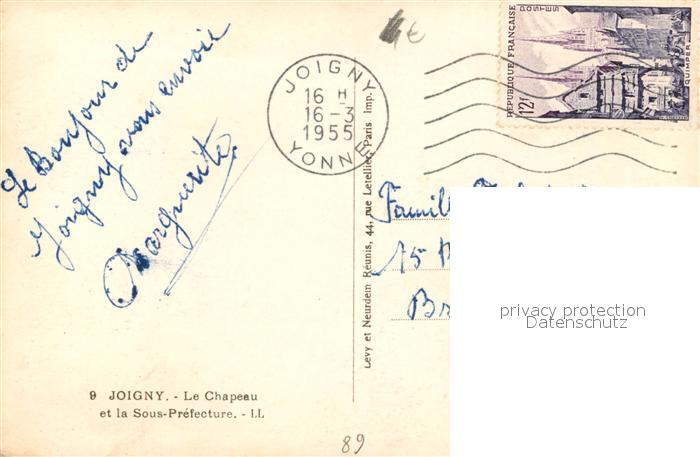 Le Bonjour de
Joigny vous envoie
Marguerite
JOIGNY
16 H
16-3
1955
YONNE
4€
RÉPUBLIQUE FRANÇAISE
POSTES
QUIMPER
12F
Levy et Neurdein Réunis, 44, rue Letellier, Paris Imp.
Famill
15
Br
privacy protection
Datenschutz
9 JOIGNY. - Le Chapeau
et la Sous-Préfecture. - LL
89